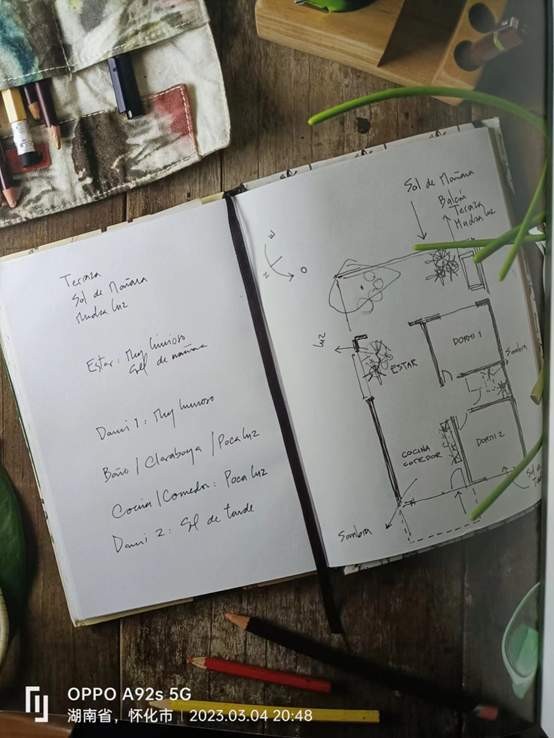 Terraza
Sol de Mañana
Mucha luz
Estar: Muy luminoso
Sol de mañana
Dormi 1: Muy luminoso
Baño / Claraboya / Poca luz
Cocina / Comedor: Poca luz
Dormi 2: Sol de tarde
Sol de Mañana
Balcón
Terraza
Mucha luz
N
O
luz
ESTAR
DORMI 1
Sombra
COCINA
COMEDOR
DORMI 2
Sombra
Sol de
OPPO A92s 5G
湖南省，怀化市 | 2023.03.04 20:48